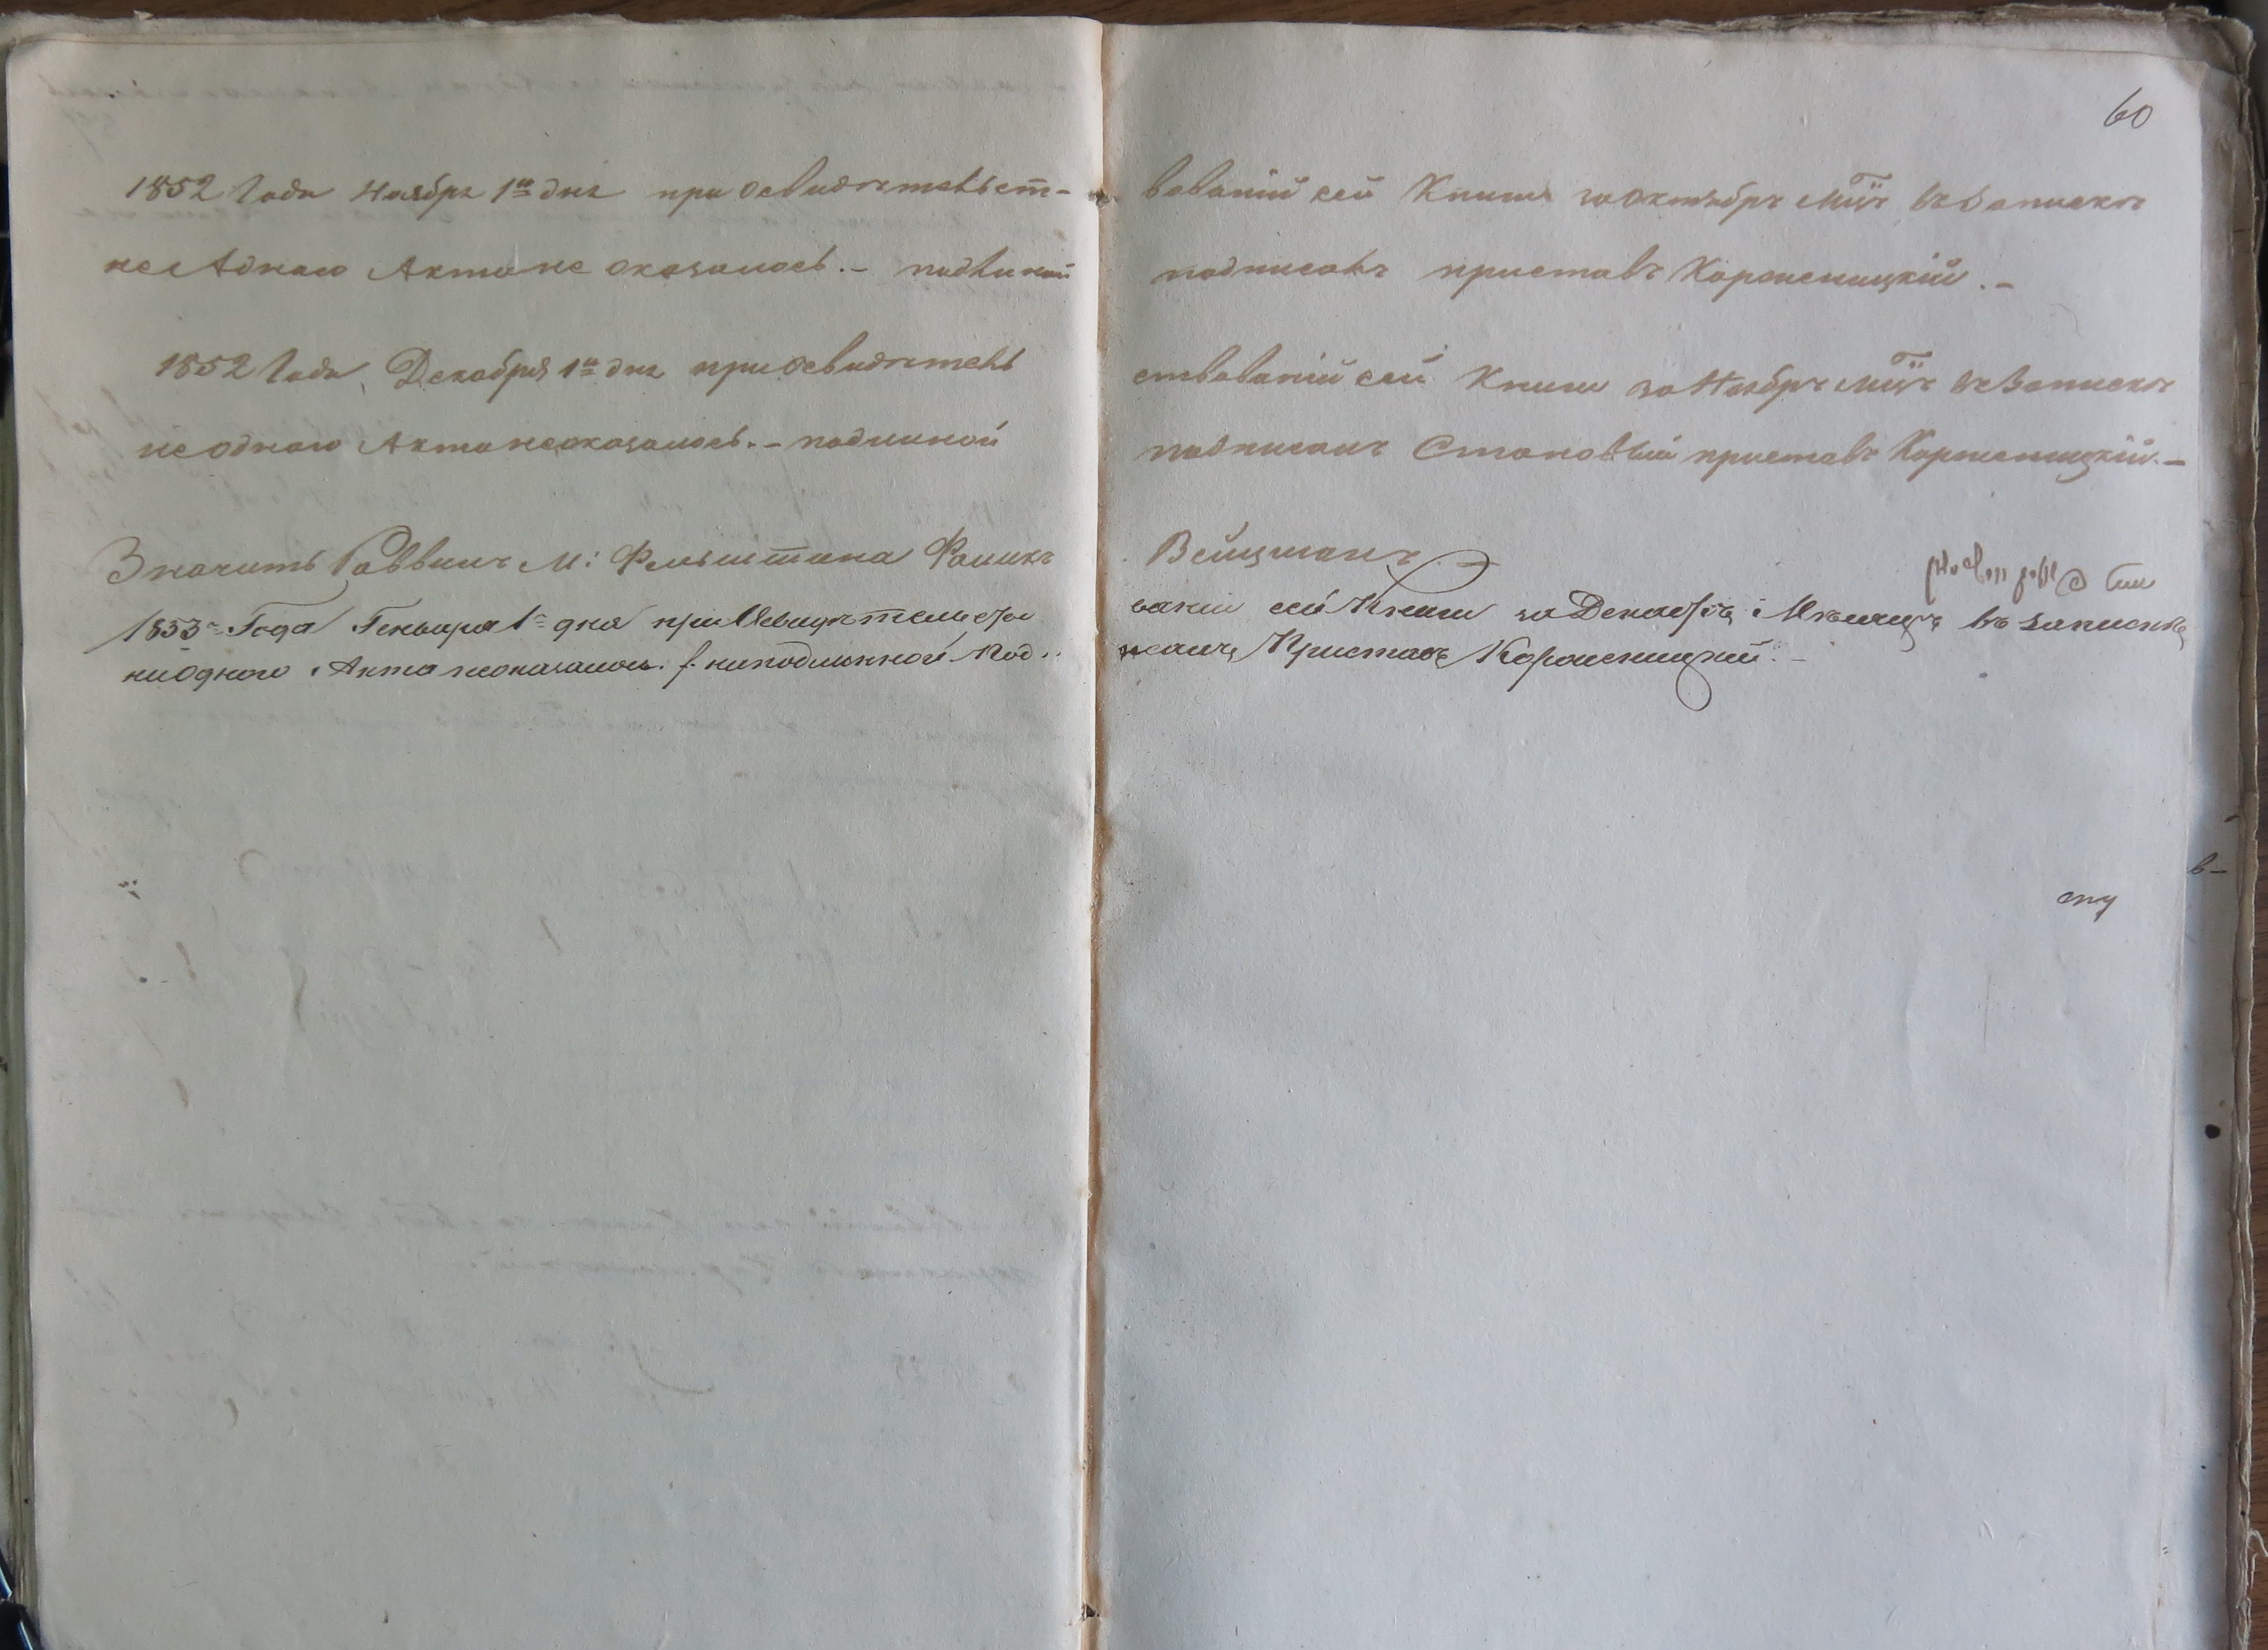 60
1852 Года Ноябрь 1го дня при освидетельст-
вованій сей Книги за Октябрь Мцъ въ Записке
не Аднаго Акта не оказалось. – подлиной
подписалъ приставъ Корженицкій. –
1852 Года Декабря 1го дня при освидѣтель
ствованій сей Книги за Ноябрь Мцъ въ Записке
не однаго Акта неоказалось. – подлиной
подписалъ Становый приставъ Корженицкій. –
Раввинъ М: Фельштина
Вейцманъ
1853 Года Генваря 1 дня при Освидѣтельство
ваніи сей Книги за Декабрь Мѣсяцъ въ записке
ни Одного Акта неоказалось. подлинной Под
писалъ Приставъ Корженицкий. –